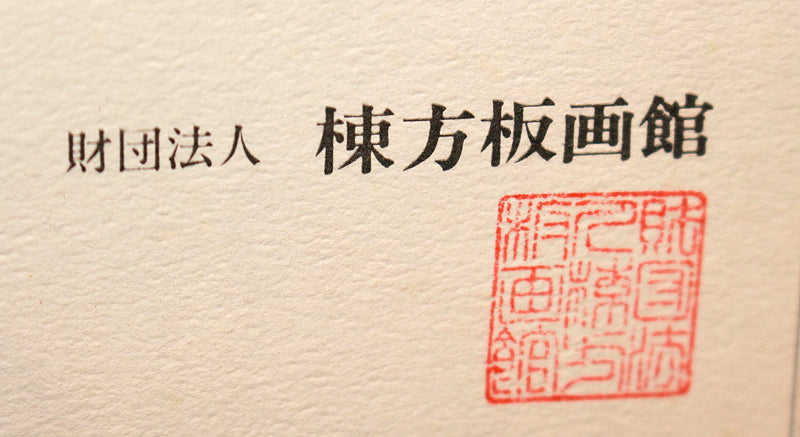 財団法人 棟方板画館
財団法
人棟方
板画館